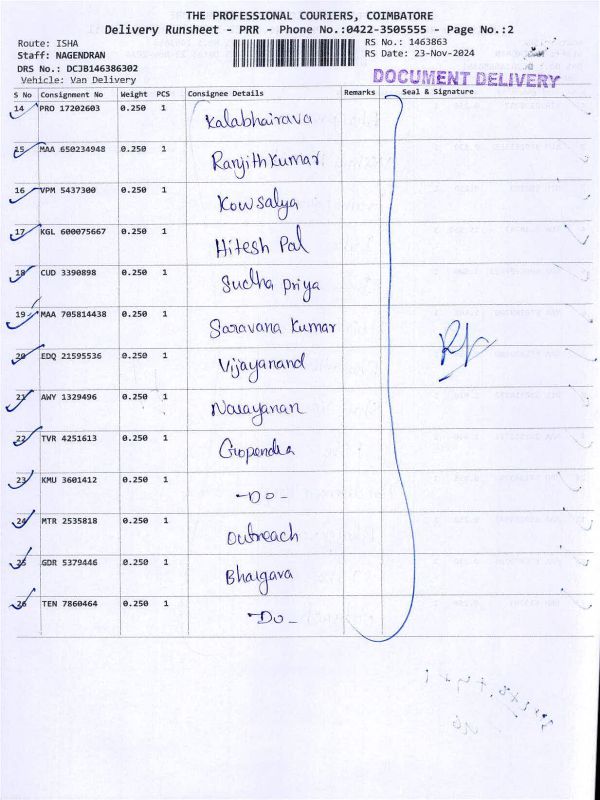 THE PROFESSIONAL COURIERS, COIMBATORE
Delivery Runsheet - PRR - Phone No.:0422-3505555 - Page No.:2
Route: ISHA
Staff: NAGENDRAN
DRS No.: DCJB146386302
Vehicle: Van Delivery
RS No.: 1463863
RS Date: 23-Nov-2024
DOCUMENT DELIVERY
S No Consignment No Weight PCS Consignee Details Remarks Seal & Signature
14 PRO 17202603 0.250 1 Kalabhairava
15 MAA 650234948 0.250 1 Ranjithkumar
16 VPM 5437300 0.250 1 Kowsalya
17 KGL 600075667 0.250 1 Hitesh Pal
18 CUD 3390898 0.250 1 Sudha Priya
19 MAA 705814438 0.250 1 Saravana Kumar
20 EDQ 21595536 0.250 1 Vijayanand
21 AWY 1329496 0.250 1 Narayanan
22 TVR 4251613 0.250 1 Gropendra
23 KMU 3601412 0.250 1 -DO-
24 MTR 2535818 0.250 1 Outreach
25 GDR 5379446 0.250 1 Bhargava
26 TEN 7860464 0.250 1 -DO-